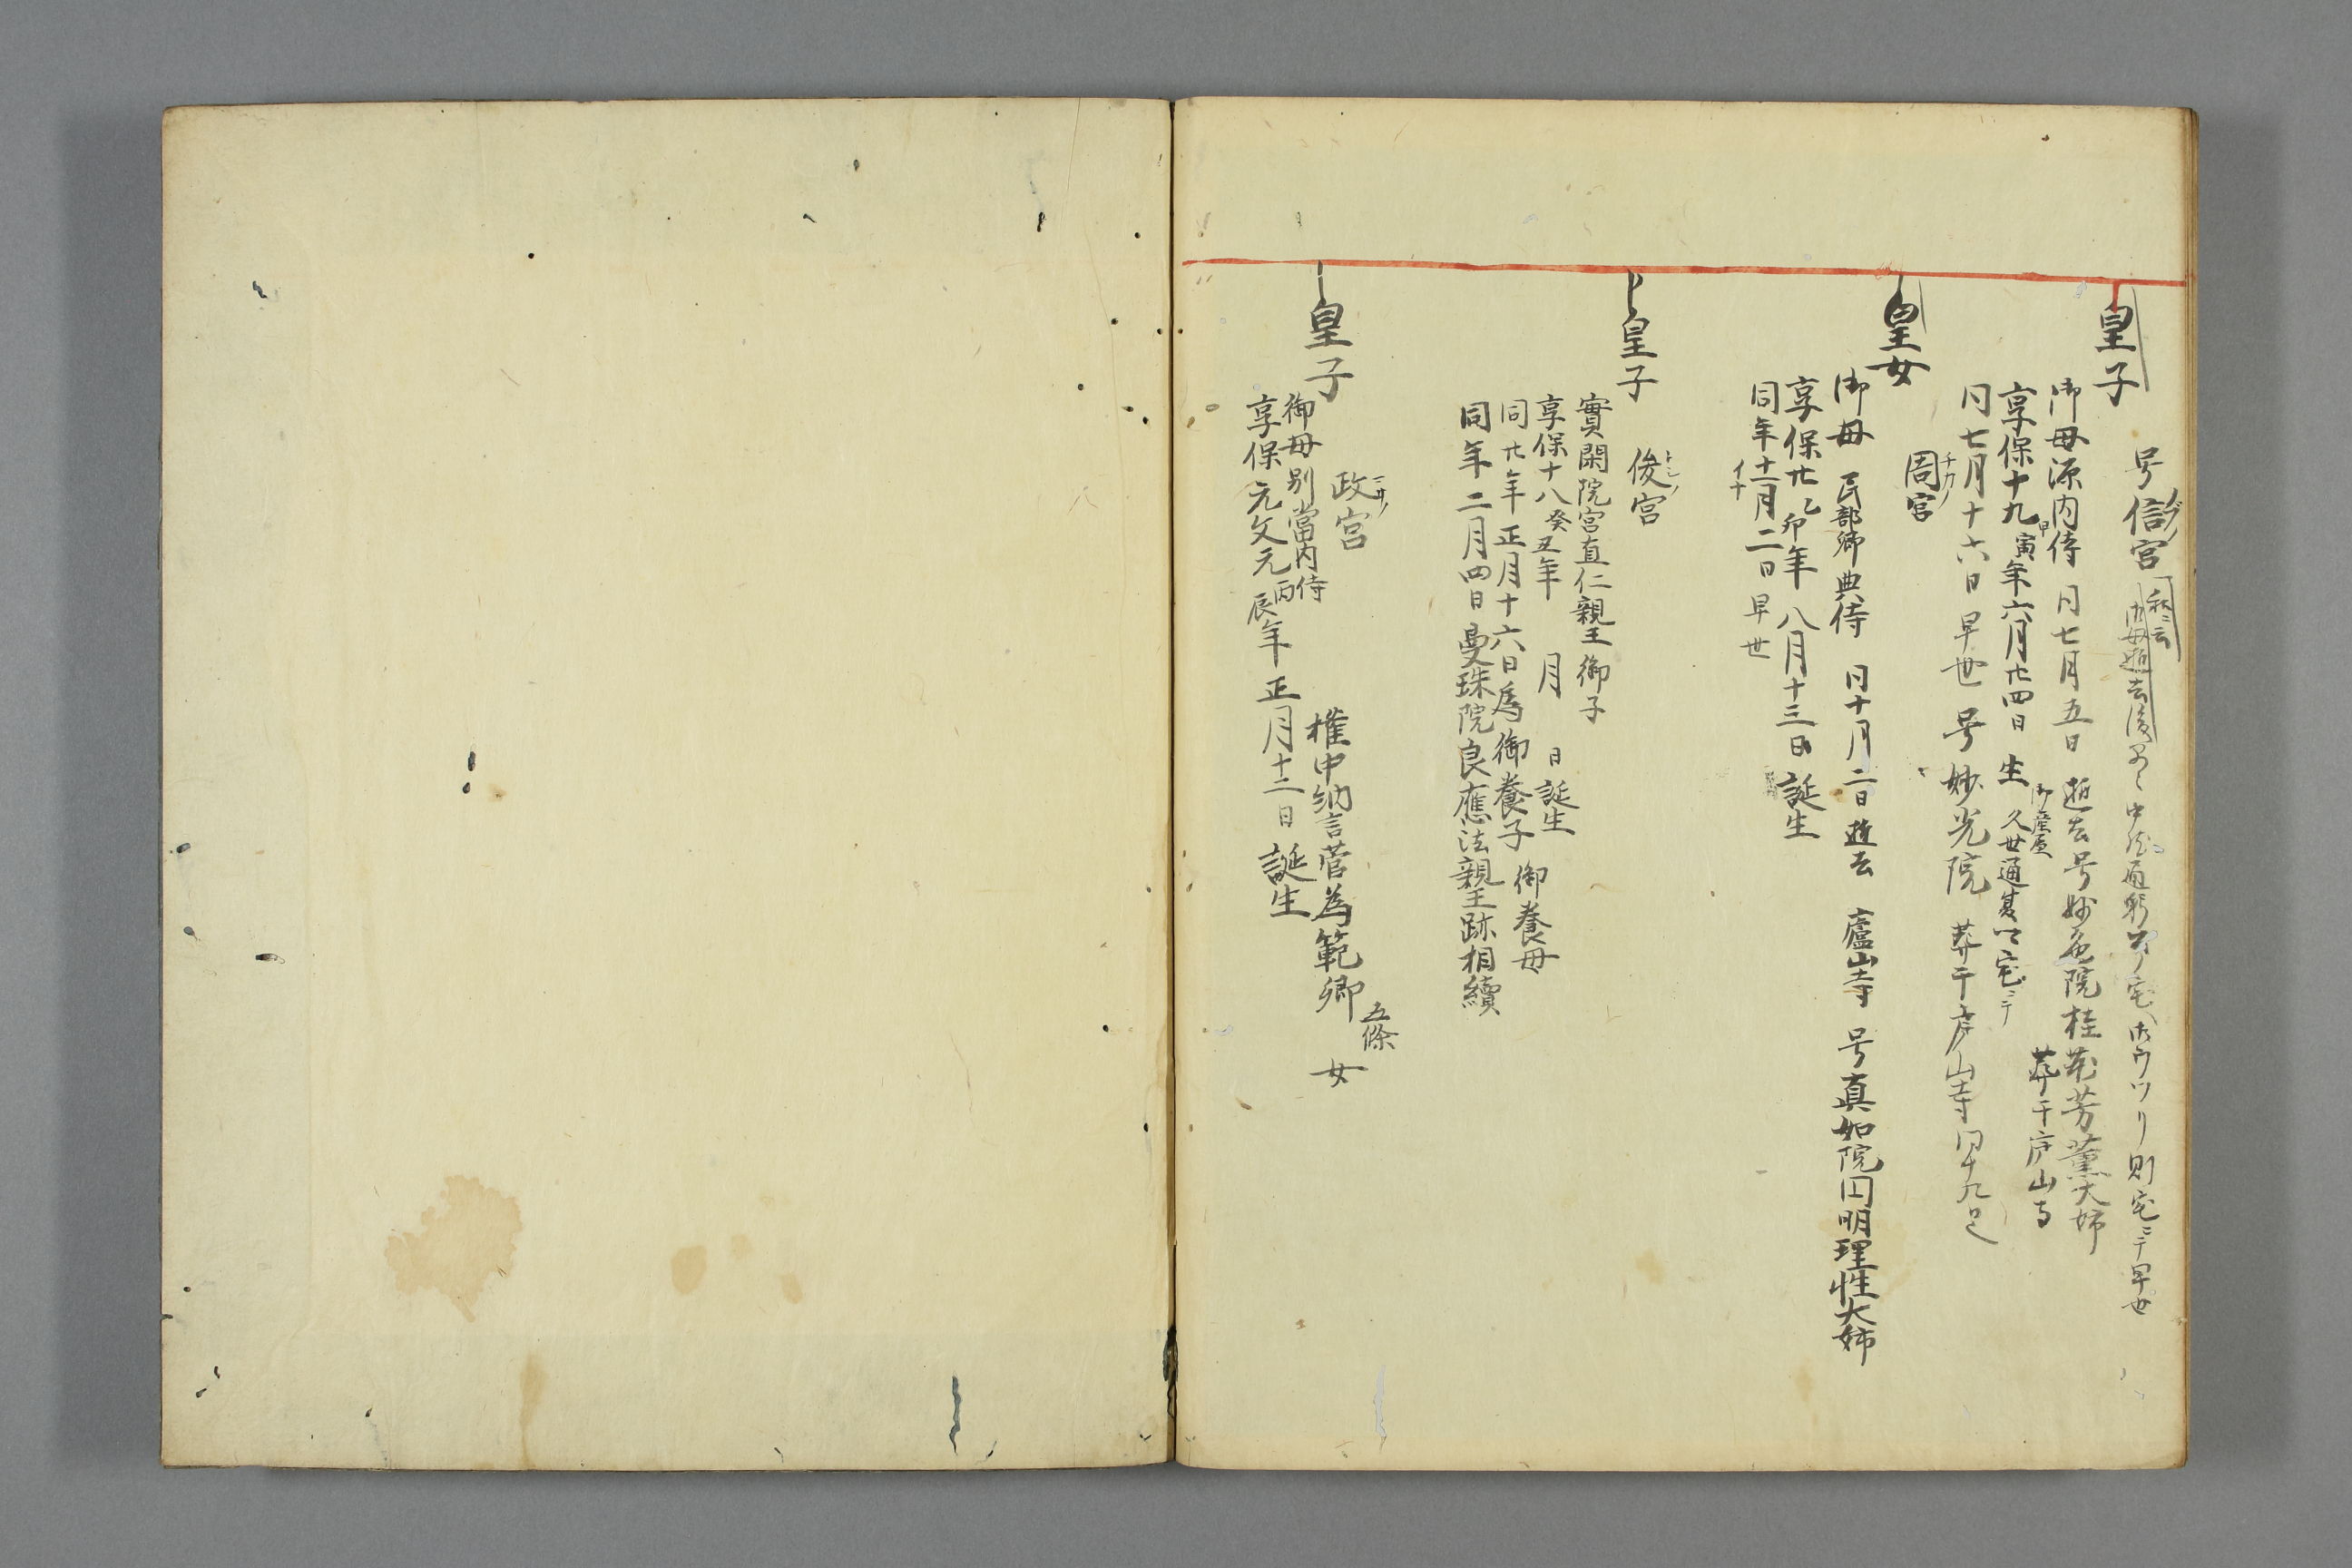 皇子
号信宮
御母逝去後
御ウツリ則宅ニテ早世
御母源内侍 同七月五日 逝去号妙 院桂芳薫大姉
葬于庐山寺
享保十九甲寅年六月廿四日生 御産屋 久世通夏 宅ニテ
同七月十六日早世 号妙光院 葬于庐山寺
皇女
周宮
チカノ
御母 民部卿典侍 同十月二日逝去 廬山寺 号真如院円明理性大姉
享保廿乙卯年 八月十三日誕生
同年十一月二日早世
皇子
俊宮
トシノ
實閑院宮直仁親王御子
享保十八癸丑年 月 日誕生
同廿年正月十六日為御養子 御養母
同年二月四日曼珠院良應法親王跡相續
皇子
政宮
御母別當内侍 権中納言菅為範卿 五條 女
享保元文元丙辰年正月十二日誕生